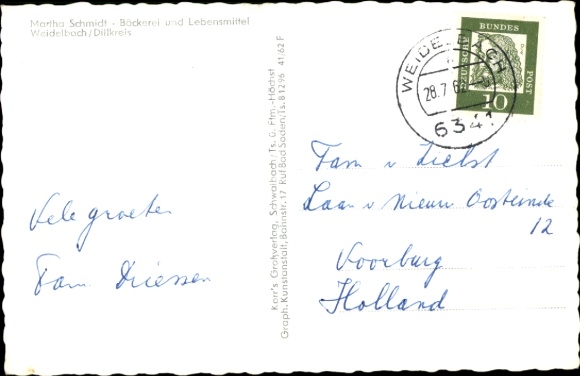 Martha Schmidt · Bäckerei und Lebensmittel
Weidelbach/Dillkreis
Vele groeten
Fam. Driessen
Karr's Großverlag, Schwalbach/Ts. ü. Ffm.-Höchst
Graph. Kunstanstalt, Bahnstr. 17 Ruf Bad Soden/Ts. 81296 41/62 F
DEUTSCHE BUNDES POST
10
WEIDELBACH
28.7.62
6341
Fam v
Laan v Nieuw Oosteinde
12
Voorburg
Holland